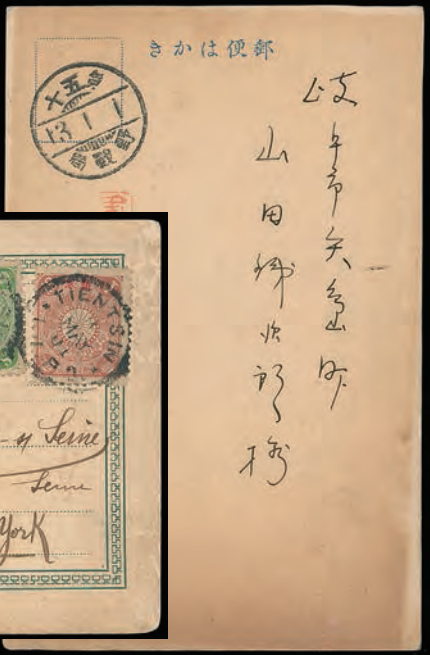 郵便はかき
第五十
13 1 1
野戦局
岐阜市矢島町
山田 次郎様
TIENTSIN
of Seine
Seine
York